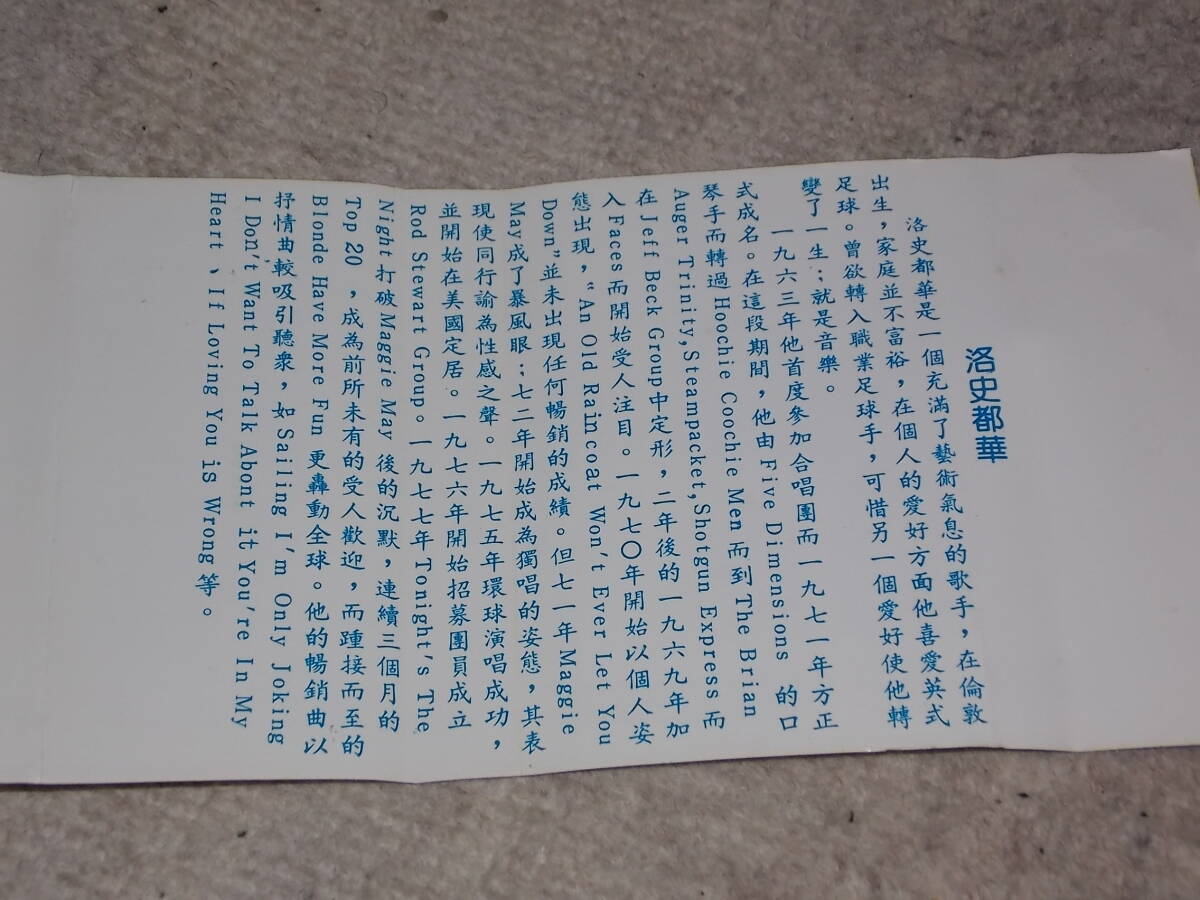 洛史都華
洛史都華是一個充滿了藝術氣息的歌手，在倫敦
出生，家庭並不富裕，在個人的愛好方面他喜愛英式
足球。曾欲轉入職業足球手，可惜另一個愛好使他轉
變了一生：就是音樂。
一九六三年他首度參加合唱團而一九七一年方正
式成名。在這段期間，他由Five Dimensions 的口
琴手而轉過 Hoochie Coochie Men 而到The Brian
Auger Trinity,Steampacket,Shotgun Express 而
在Jeff Beck Group中定形，二年後的一九六九年加
入Faces而開始受人注目。一九七〇年開始以個人姿
態出現，“An Old Raincoat Won't Ever Let You
Down”並未出現任何暢銷的成績。但七一年Maggie
May成了暴風眼；七二年開始成為獨唱的姿態，其表
現使同行諭為性感之聲。一九七五年環球演唱成功，
並開始在美國定居。一九七六年開始招募團員成立
Rod Stewart Group。一九七七年Tonight's The
Night打破Maggie May 後的沉默，連續三個月的
Top 20 ，成為前所未有的受人歡迎，而踵接而至的
Blonde Have More Fun 更轟動全球。他的暢銷曲以
抒情曲較吸引聽衆，如 Sailing I'm Only Joking
I Don't Want To Talk Abont it You're In My
Heart、If Loving You is Wrong 等。